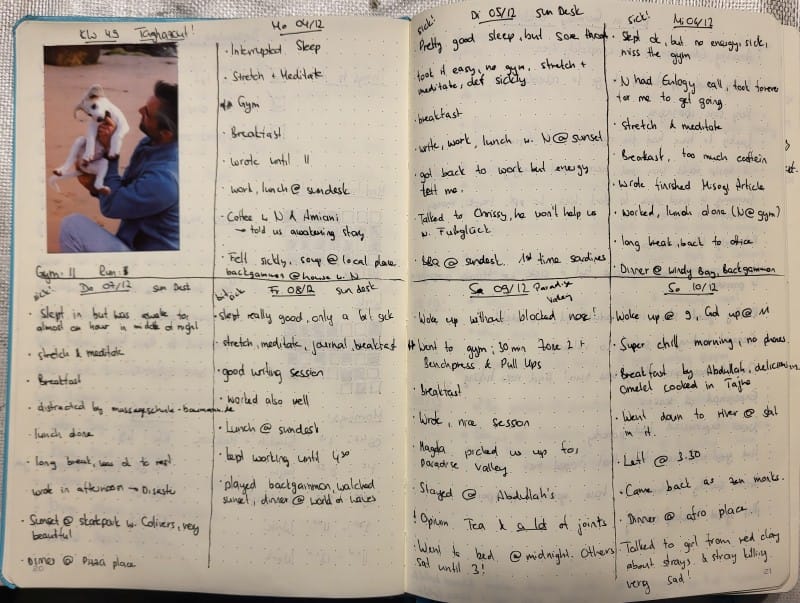 KW 49 Taghazout!
Mo 04/12
· Interrupted Sleep
· Stretch + Meditate
· Gym
· Breakfast
· Wrote until 11
· Work, lunch @ sundesk
· Coffee w N & Amiani
→ told us awakening story
· Fell sickly, soup @ local place
backgammon @ house w. N
Gym: 11 Run:
sick! Di 05/12 sun Desk
Pretty good sleep, but sore throat
took it easy, no gym, stretch +
meditate, def sickly
· breakfast
· write, work, lunch w. N @ sunset
· got back to work but energy
left me.
Talked to Chrissy, he won't help us
w. Fuhglück
· BBQ @ sundesk. 1st time sardines
sick! Mi 06/12
Slept ok, but no energy, sick,
miss the gym
· N had Eulogy call, took forever
for me to get going
· stretch & meditate
· Breakfast, too much coffein
· Wrote finished Misogi Article
· worked, lunch alone (N @ gym)
· long break, back to office
· Dinner @ Windy Bay, Backgammon
sick! Do 07/12 sun Desk
· Slept in but was awake for
almost an hour in middle of night
· stretch & meditate
· Breakfast
· distracted by massageschule-baumann.de
· lunch alone
· long break, was ok to rest
wrote in afternoon → Disaster
· Sunset @ skatepark w. Colivers, very
beautiful
· Dinner @ Pizza place
20
bit sick Fr 08/12 sun desk
· slept really good, only a bit sick
· stretch, meditate, journal, breakfast
· good writing session
· worked also well
· Lunch @ sundesk
· kept working until 4:30
· played backgammon, watched
sunset, dinner @ world of waves
Sa 09/12 Paradise
Valley
· Woke up without blocked nose!
· Went to gym: 30 min Zone 2 +
Benchpress & Pull Ups
· Breakfast
· Wrote, nice session
· Magda picked us up for
Paradise Valley
· Stayed @ Abdullah's
! Opium Tea & a lot of joints
· Went to bed @ midnight. Others
sat until 3!
So 10/12
· Woke up @ 9, Got up @ 11
· Super chill morning, no phones
· Breakfast by Abdullah, delicious
omelet cooked in Tajine
· Went down to river @ sat
in it.
· Left @ 3.30
· Came back as zen monks.
· Dinner @ afro place.
· Talked to girl from red clay
about strays & stray killing
very sad!
21